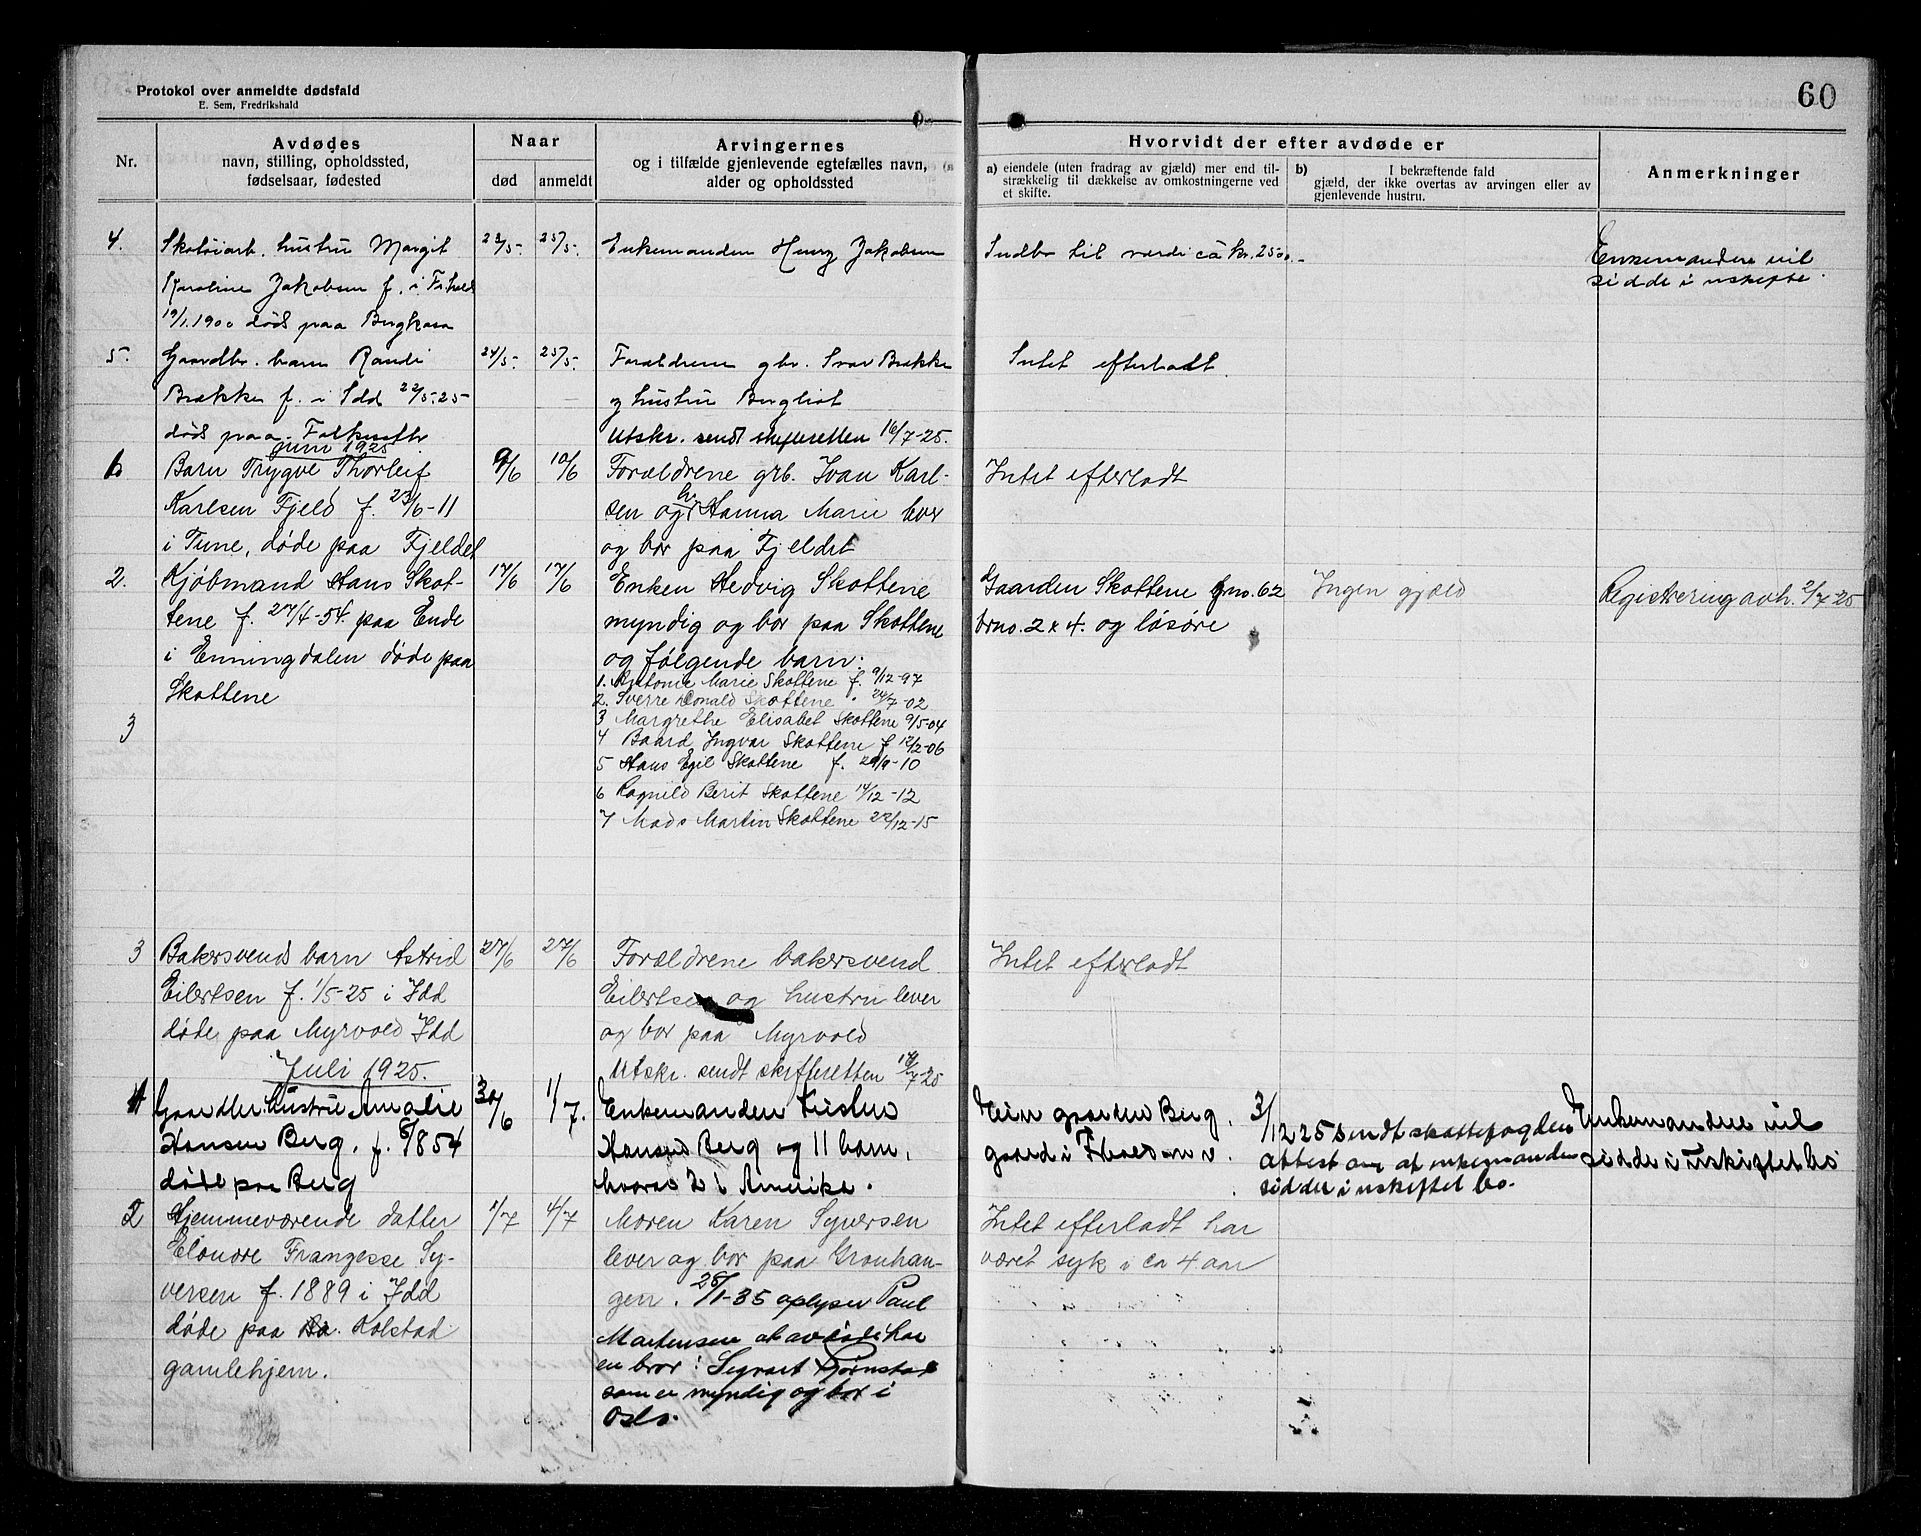 60
Protokol over anmeldte dødsfald
E. Sem, Fredrikshald
Nr.
Avdødes
navn, stilling, opholdssted,
fødselsaar, fødested
Naar
død
anmeldt
Arvingernes
og i tilfælde gjenlevende egtefælles navn,
alder og opholdssted
Hvorvidt der efter avdøde er
a) eiendele (uten fradrag av gjæld) mer end til-
strækkelig til dækkelse av omkostningerne ved
et skifte.
b) I bekræftende fald
gjæld, der ikke overtas av arvingen eller av
gjenlevende hustru.
Anmerkninger
4.
Skotøiarb. hustru Margit
Karoline Jakobsen f. i Fr.hald
19/1.1900 død paa Bergkasa
22/5-
25/5-
Enkemanden Henry Jakobsen
Indbo til værdi ca kr. 2500.-
Enkemanden vil
sidde i uskifte.
5.
Gaardbr. barn Randi
Brække f. i Idd 22/5-25
død paa
24/5-
25/5-
Forældrene gbr. Ivar Brække
og hustru Bergliot
Utskr. sendt skifteretten 16/7-25.
Intet efterladt.
Juni 1925
Barn Trygve Thorleif
Karlsen Fjeld f. 23/6-11
i Tune, døde paa Fjeldet
9/6
10/6
Forældrene grb. Ivan Karl-
sen og hr Hanna Marie lever
og bor paa Fjeldet
Intet efterladt
2.
Kjøbmand Hans Skot-
tene f. 27/4-54. paa Ende
i Enningdalen døde paa
Skottene
17/6
17/6
Enken Hedvig Skottene
myndig og bor paa Skottene
og følgende barn:
1. Antonie Marie Skottene f. 9/12-97
2. Sverre Donald Skottene " 24/7-02
3 Margrethe Elisabet Skottene 9/5-04
4 Baard Ingvar Skottene f 12/2-06
5 Hans Egil Skottene f. 29/9-10
6 Ragnild Berit Skottene 14/12-12
7 Mads Martin Skottene 22/12-15
Gaarden Skottene gno. 62
brno. 2 x 4. og løsøre
Ingen gjæld
Registrering avh. 2/7-25
3
3
Bakersvends barn Astrid
Eilertsen f. 1/5-25 i Idd
døde paa Myrvold Idd
27/6
27/6
Forældrene bakersvend
Eilertsen og hustru lever
og bor paa Myrvold
Utskr. sendt skifteretten 16/7-25
Intet efterladt
Juli 1925.
1
Gaardbr. hustru Amalie
Hansen Berg. f. 1854
døde paa Berg
30/6
1/7.
Enkemanden
Hansen Berg og 11 barn,
hvorav 2 i Amerika.
Eier gaarden Berg
3/12 25 sendt skattefogden
attest om at enkemanden
sidder i uskiftet bo.
Enkemanden vil
sidde i uskiftet bo
2
Hjemmeværende datter
Elonore Frangesse Sy-
versen f. 1889 i Idd
døde paa Kolstad
gamlehjem.
1/7
4/7
Moren Karen Syversen
lever og bor paa Grønhan-
gen. 28/1-35 oplyser Paul
Martensen at avdøde har
en bror: Syvert
som er myndig og bor i
Oslo.
Intet efterladt har
været syk i ca 4 aar